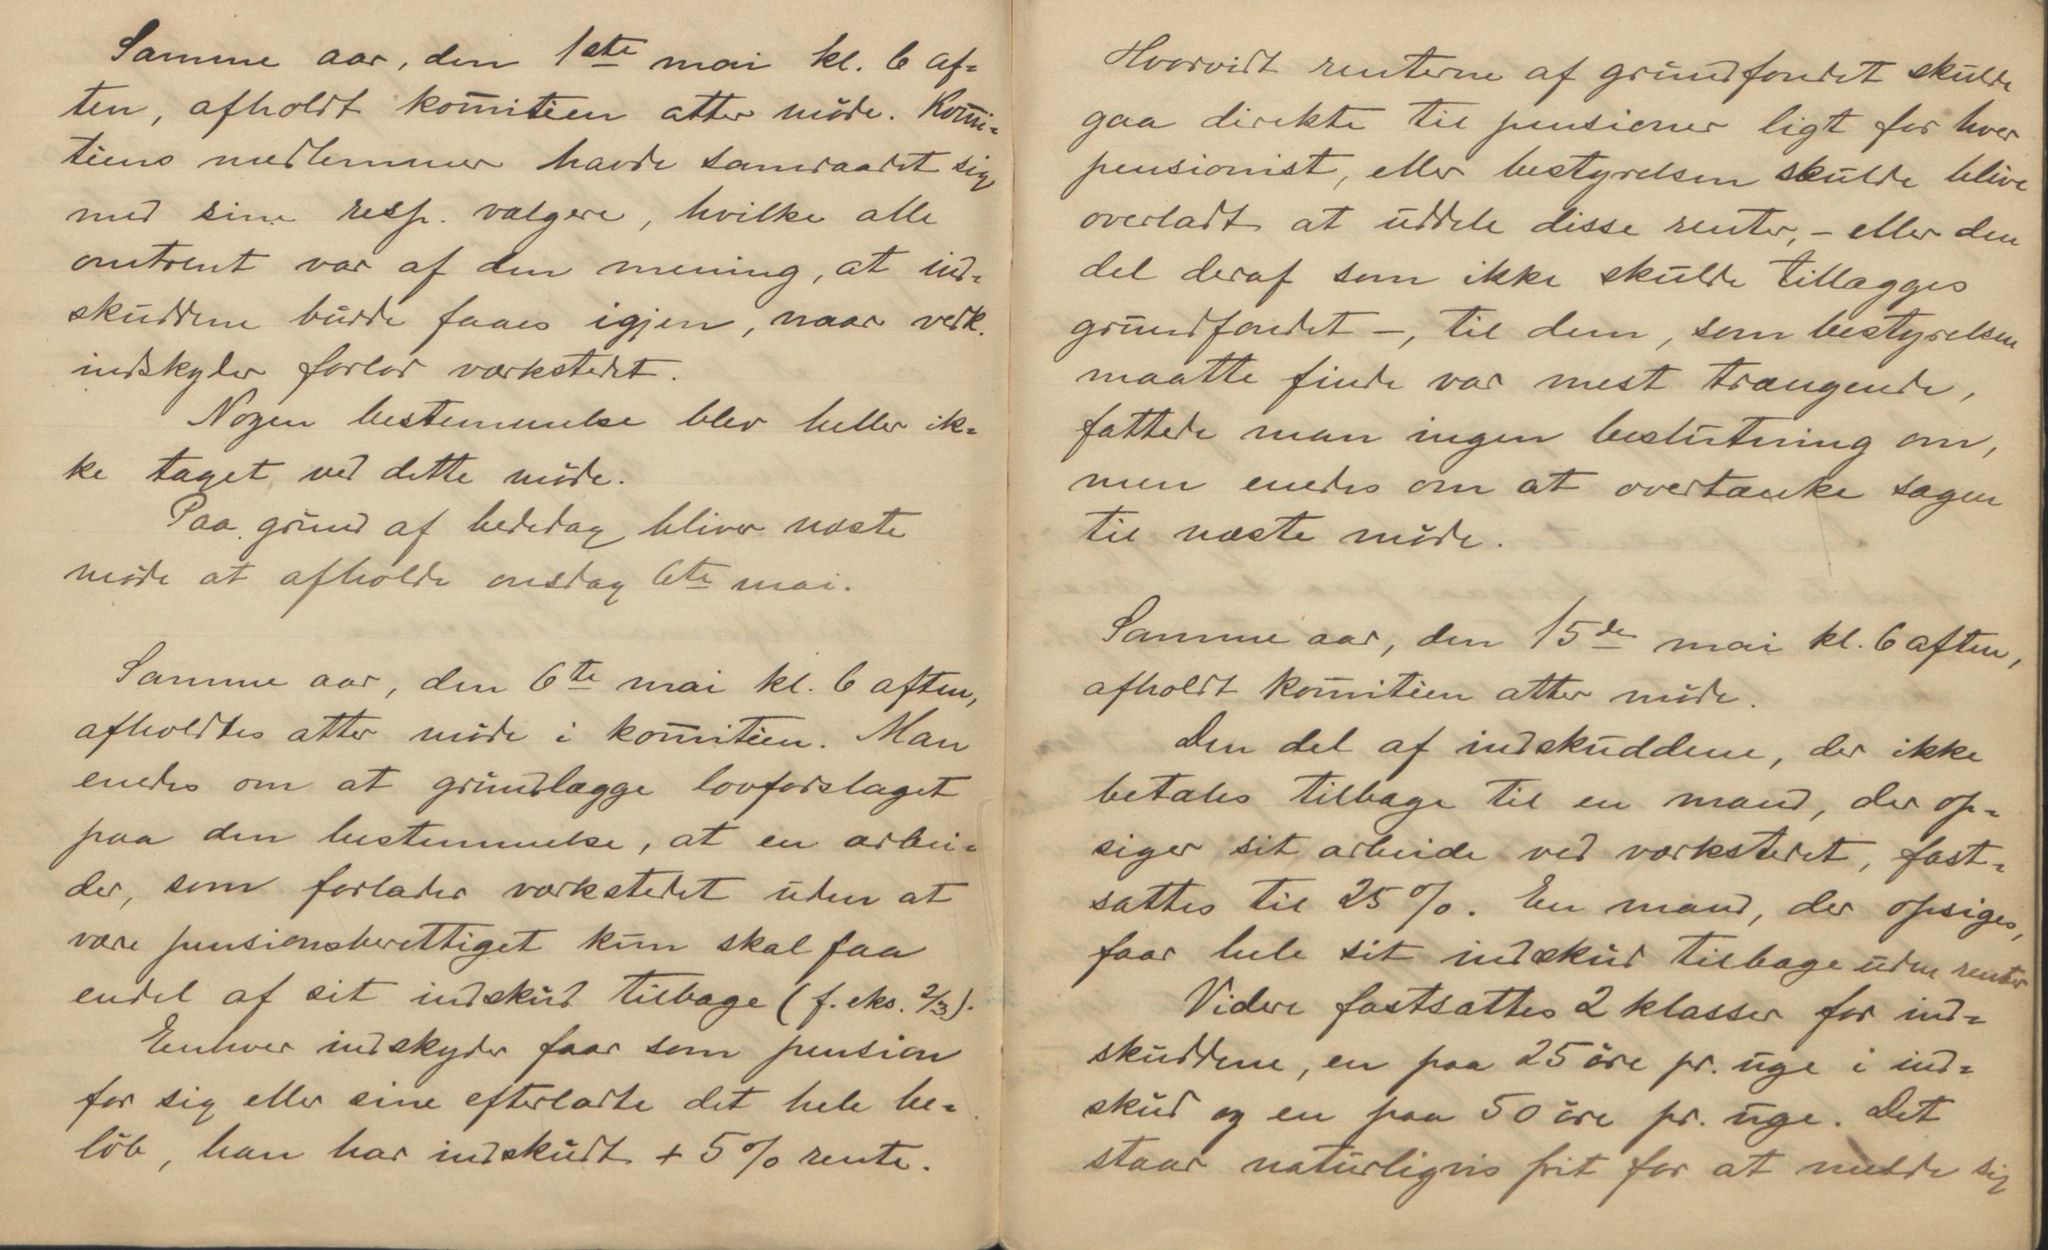 Samme aar, den 1ste mai kl. 6 af=
ten, afholdt komitien atter møde. Komi=
tiens medlemmer havde samraadet sig
med sine resp. vælgere, hvilke alle
omtrent var af den mening, at ind=
skuddene burde faaes igjen, naar vedk.
indskyder forlod værkstedet.
Nogen bestemmelse blev heller ik=
ke taget ved dette møde.
Paa grund af bededag bliver næste
møde at afholde onsdag 6te mai.
Samme aar, den 6te mai kl. 6 aften,
afholdtes atter møde i komitien. Man
enedes om at grundlægge lovforslaget
paa den bestemmelse, at en arbei=
der, som forlader værkstedet uden at
være pensionsberettiget kun skal faa
endel af sit indskud tilbage (f. eks. 2/3).
Enhver indskyder faar som pension
for sig eller sine efterladte det hele be=
løb, han har indskudt + 5 % rente.
Hvorvidt renterne af grundfondet skulde
gaa direkte til pensioner ligt for hver
pensionist, eller bestyrelsen skulde blive
overladt at uddele disse renter, - eller den
del deraf som ikke skulde tillægges
grundfondet -, til dem, som bestyrelsen
maatte finde var mest trængende,
fattede man ingen beslutning om,
men enedes om at overtænke sagen
til næste møde.
Samme aar, den 15de mai kl. 6 aften,
afholdt komitien atter møde.
Den del af indskuddene, der ikke
betales tilbage til en mand, der op=
siger sit arbeide ved værkstedet, fast=
sattes til 25 %. En mand, der opsiges,
faar hele sit indskud tilbage uden renter
Videre fastsattes 2 klasser for ind=
skuddene, en paa 25 øre pr. uge i ind=
skud og en paa 50 øre pr. uge. Det
staar naturligvis frit for at melde sig